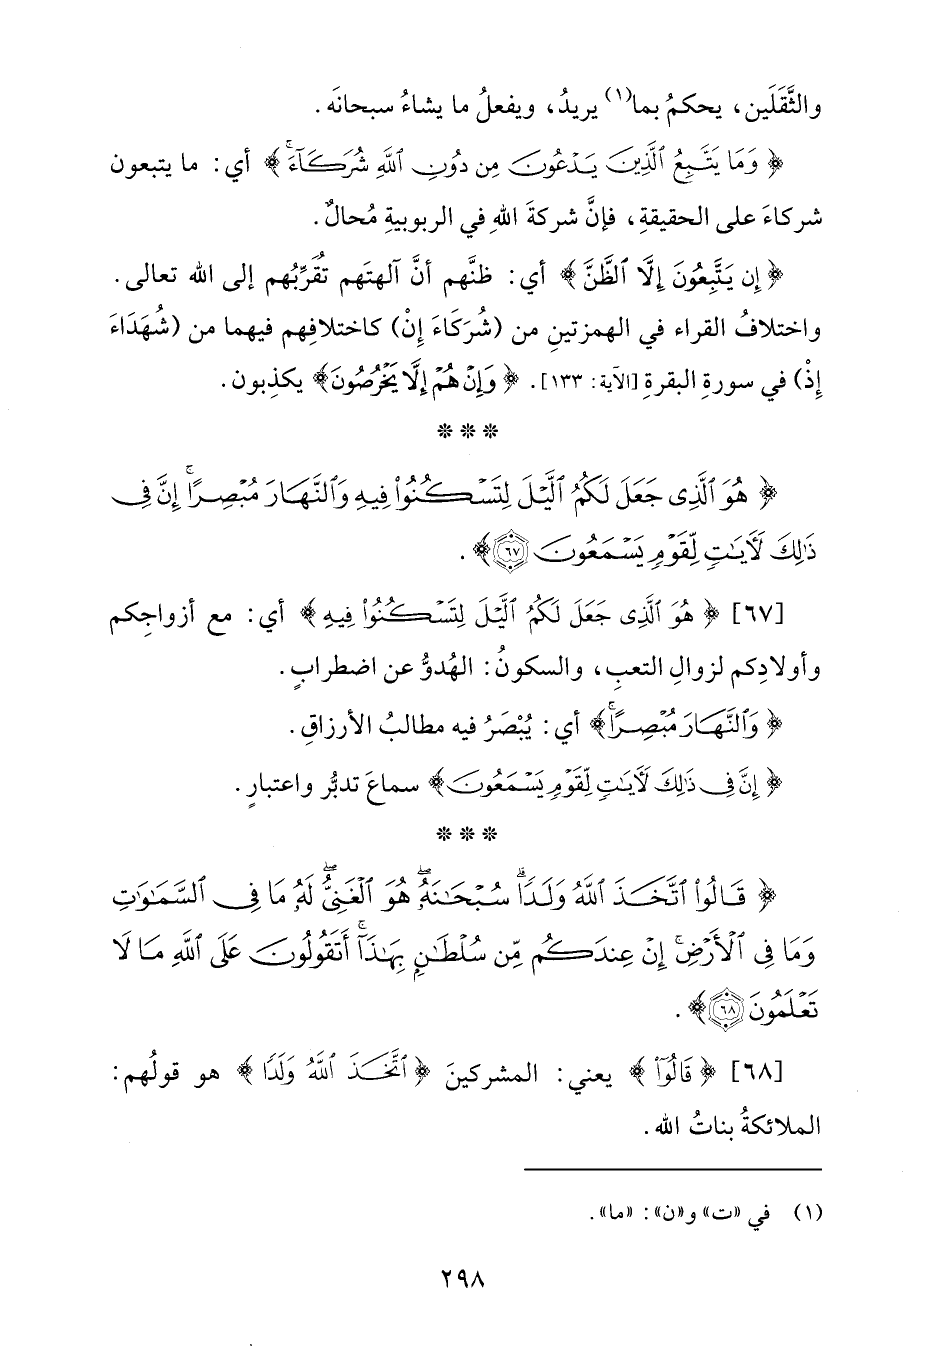 والثَّقَلَين، يحكمُ بما(١) يريدُ، ويفعلُ ما يشاءُ سبحانَه.
﴿وَمَا يَتَّبِعُ ٱلَّذِينَ يَدْعُونَ مِن دُونِ ٱللَّهِ شُرَكَآءَۚ﴾ أي: ما يتبعون
شركاءَ على الحقيقةِ، فإنَّ شركةَ اللهِ في الربوبيةِ مُحالٌ.
﴿إِن يَتَّبِعُونَ إِلَّا ٱلظَّنَّ﴾ أي: ظنَّهم أنَّ آلهتَهم تُقَرِّبُهم إلى الله تعالى.
واختلافُ القراء في الهمزتينِ من (شُرَكَاءَ إِنْ) كاختلافِهم فيهما من (شُهَدَاءَ
إِذْ) في سورةِ البقرةِ [الآية: ١٣٣]. ﴿وَإِنْ هُمْ إِلَّا يَخْرُصُونَ﴾ يكذِبون.
* * *
﴿هُوَ ٱلَّذِى جَعَلَ لَكُمُ ٱلَّيْلَ لِتَسْكُنُوا۟ فِيهِ وَٱلنَّهَارَ مُبْصِرًاۚ إِنَّ فِى
ذَٰلِكَ لَآيَـٰتٍ لِّقَوْمٍ يَسْمَعُونَ ٦٧﴾.
[٦٧] ﴿هُوَ ٱلَّذِى جَعَلَ لَكُمُ ٱلَّيْلَ لِتَسْكُنُوا۟ فِيهِ﴾ أي: مع أزواجِكم
وأولادِكم لزوالِ التعبِ، والسكونُ: الهُدوُّ عن اضطرابٍ.
﴿وَٱلنَّهَارَ مُبْصِرًاۚ﴾ أي: يُبْصَرُ فيه مطالبُ الأرزاقِ.
﴿إِنَّ فِى ذَٰلِكَ لَآيَـٰتٍ لِّقَوْمٍ يَسْمَعُونَ﴾ سماعَ تدبُّر واعتبارٍ.
* * *
﴿قَالُوا۟ ٱتَّخَذَ ٱللَّهُ وَلَدًاۗ سُبْحَـٰنَهُۥۖ هُوَ ٱلْغَنِىُّۖ لَهُۥ مَا فِى ٱلسَّمَـٰوَٰتِ
وَمَا فِى ٱلْأَرْضِۚ إِنْ عِندَكُم مِّن سُلْطَـٰنٍۭ بِهَـٰذَآۚ أَتَقُولُونَ عَلَى ٱللَّهِ مَا لَا
تَعْلَمُونَ ٦٨﴾.
[٦٨] ﴿قَالُوٓا۟﴾ يعني: المشركينَ ﴿ٱتَّخَذَ ٱللَّهُ وَلَدًا﴾ هو قولُهم:
الملائكةُ بناتُ الله.
(١) في «ت» و«ن»: «ما».
٢٩٨